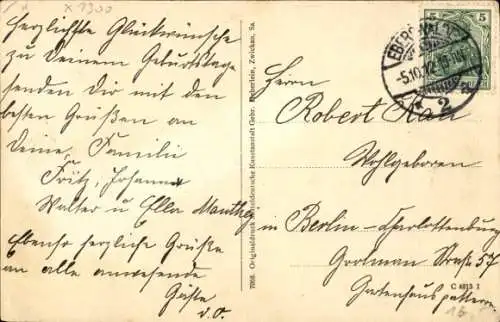 x 1300
Herzlichste Glückwünsche
zu Deinem Geburtstage
senden Dir mit den
besten Grüßen an
Deine Familie
Fritz, Johanna
Walter u Ella Manthey
Ebenso herzliche Grüße
an alle anwesende
Gäste
d. O.
7086. Originaldruck Norddeutsche Kunstanstalt Gebr. Haberlein, Zwickau, Sa.
5 5
EBERSWALDE
-5.10.12.
* 2
Herrn
Robert
Wohlgeboren
in Berlin-Charlottenburg
Straße 57
Gartenhaus parterre
C 4815 1